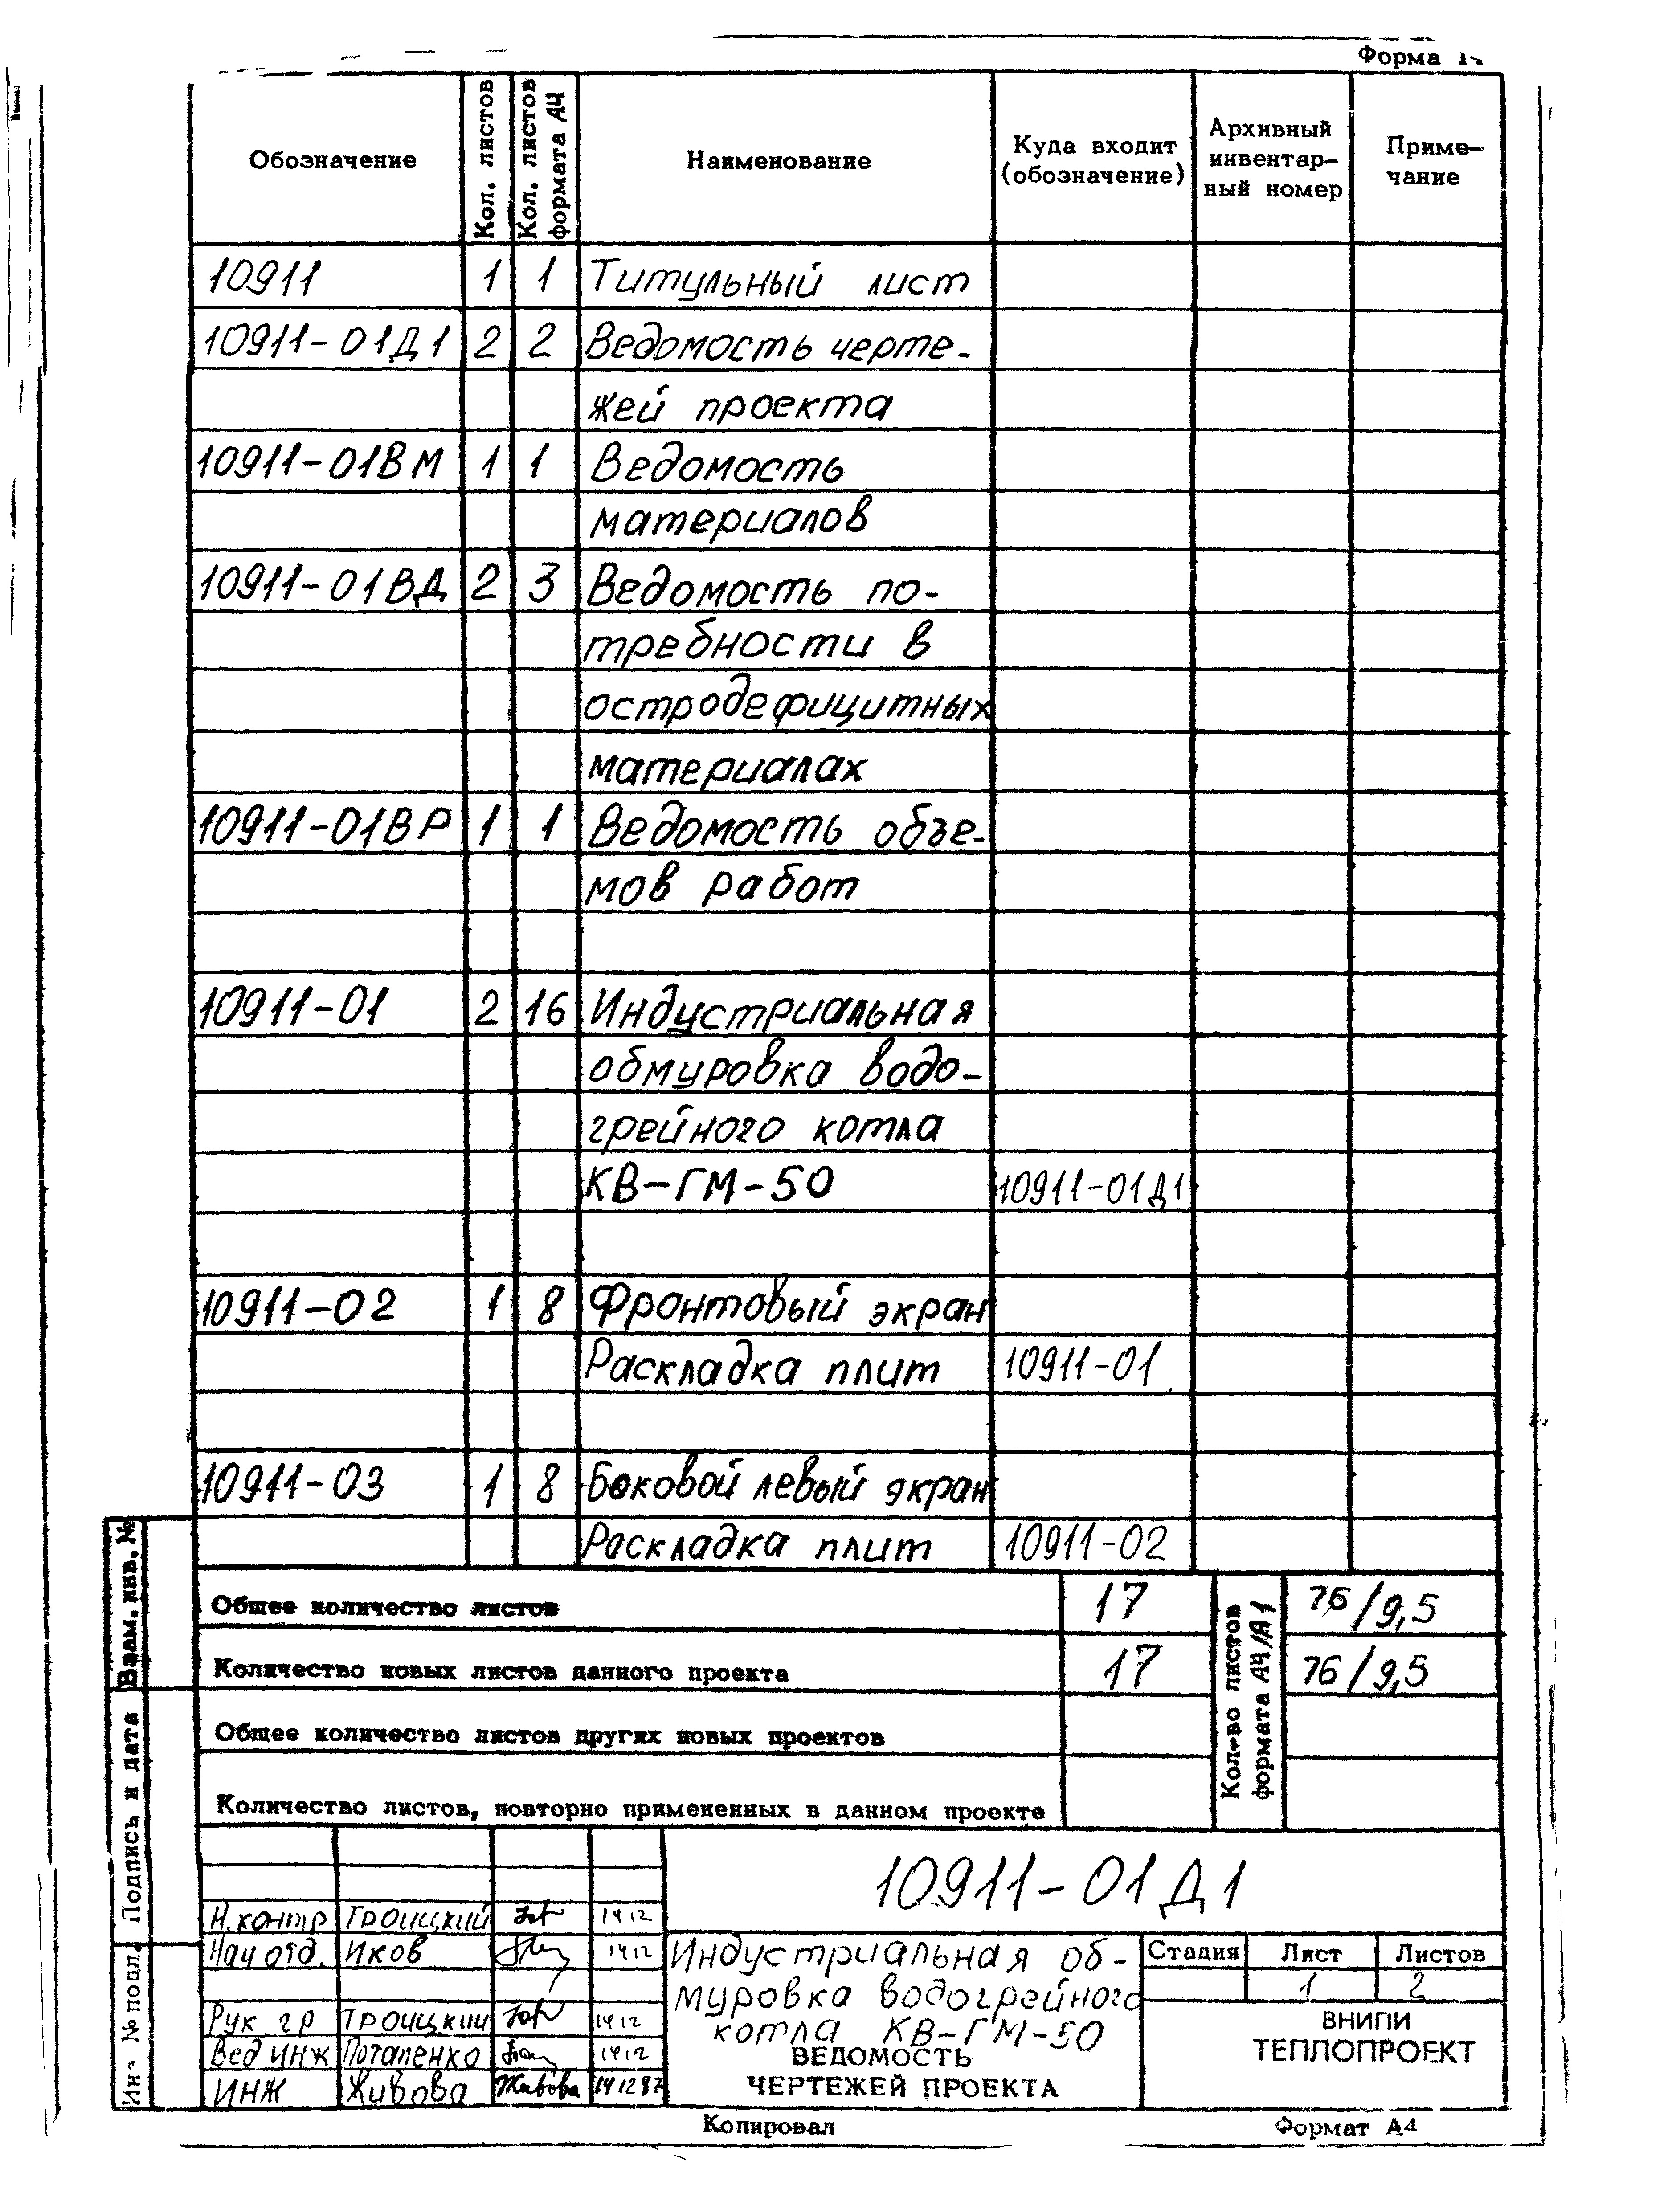 Форма
Обозначение
Кол. листов
Кол. листов
формата А4
Наименование
Куда входит
(обозначение)
Архивный
инвентар-
ный номер
Приме-
чание
10911 1 1 Титульный лист
10911-01Д1 2 2 Ведомость черте-
жей проекта
10911-01ВМ 1 1 Ведомость
материалов
10911-01ВД 2 3 Ведомость по-
требности в
остродефицитных
материалах
10911-01ВР 1 1 Ведомость объе-
мов работ
10911-01 2 16 Индустриальная
обмуровка водо-
грейного котла
КВ-ГМ-50 10911-01Д1
10911-02 1 8 Фронтовый экран
Раскладка плит 10911-01
10911-03 1 8 Боковой левый экран
Раскладка плит 10911-02
Общее количество листов 17 76/9,5
Количество новых листов данного проекта 17 76/9,5
Общее количество листов других новых проектов
Количество листов, повторно примененных в данном проекте
Кол-во листов
формата А4/А1
Взам. инв. №
Подпись и дата
№ подл.
10911-01Д1
Н.контр Троицкий 14 12
Нач отд. Иков 14 12
Рук гр Троицкий 14 12
Вед инж Потапенко 14 12
ИНЖ Живова Живова 14 12 87
Индустриальная об-
муровка водогрейного
котла КВ-ГМ-50
ВЕДОМОСТЬ
ЧЕРТЕЖЕЙ ПРОЕКТА
Стадия Лист Листов
1 2
ВНИПИ
ТЕПЛОПРОЕКТ
Копировал Формат А4